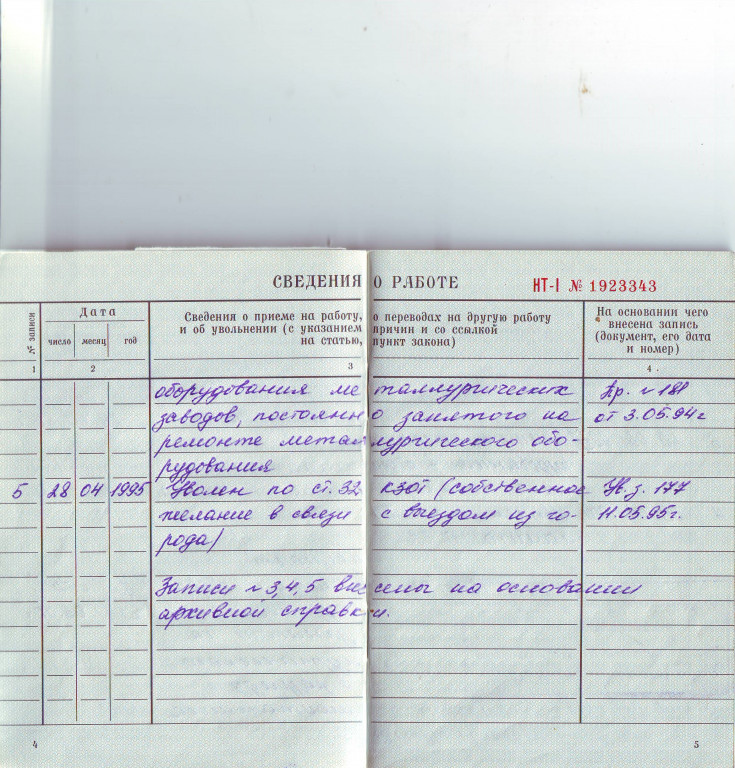 СВЕДЕНИЯ О РАБОТЕ
НТ-I № 1923343
№ записи
Дата
число месяц год
Сведения о приеме на работу, о переводах на другую работу
и об увольнении (с указанием причин и со ссылкой
на статью, пункт закона)
На основании чего
внесена запись
(документ, его дата
и номер)
1 2 3 4
оборудования металлургических Пр. № 181
заводов, постоянно занятого на от 3.05.94г
ремонте металлургического обо-
рудования
5 28 04 1995 Уволен по ст. 32 КЗОТ (собственное Ув.з. 177
желание в связи с выездом из го- 11.05.95г.
рода)
Записи № 3,4,5 внесены на основании
архивной справки.
4 5